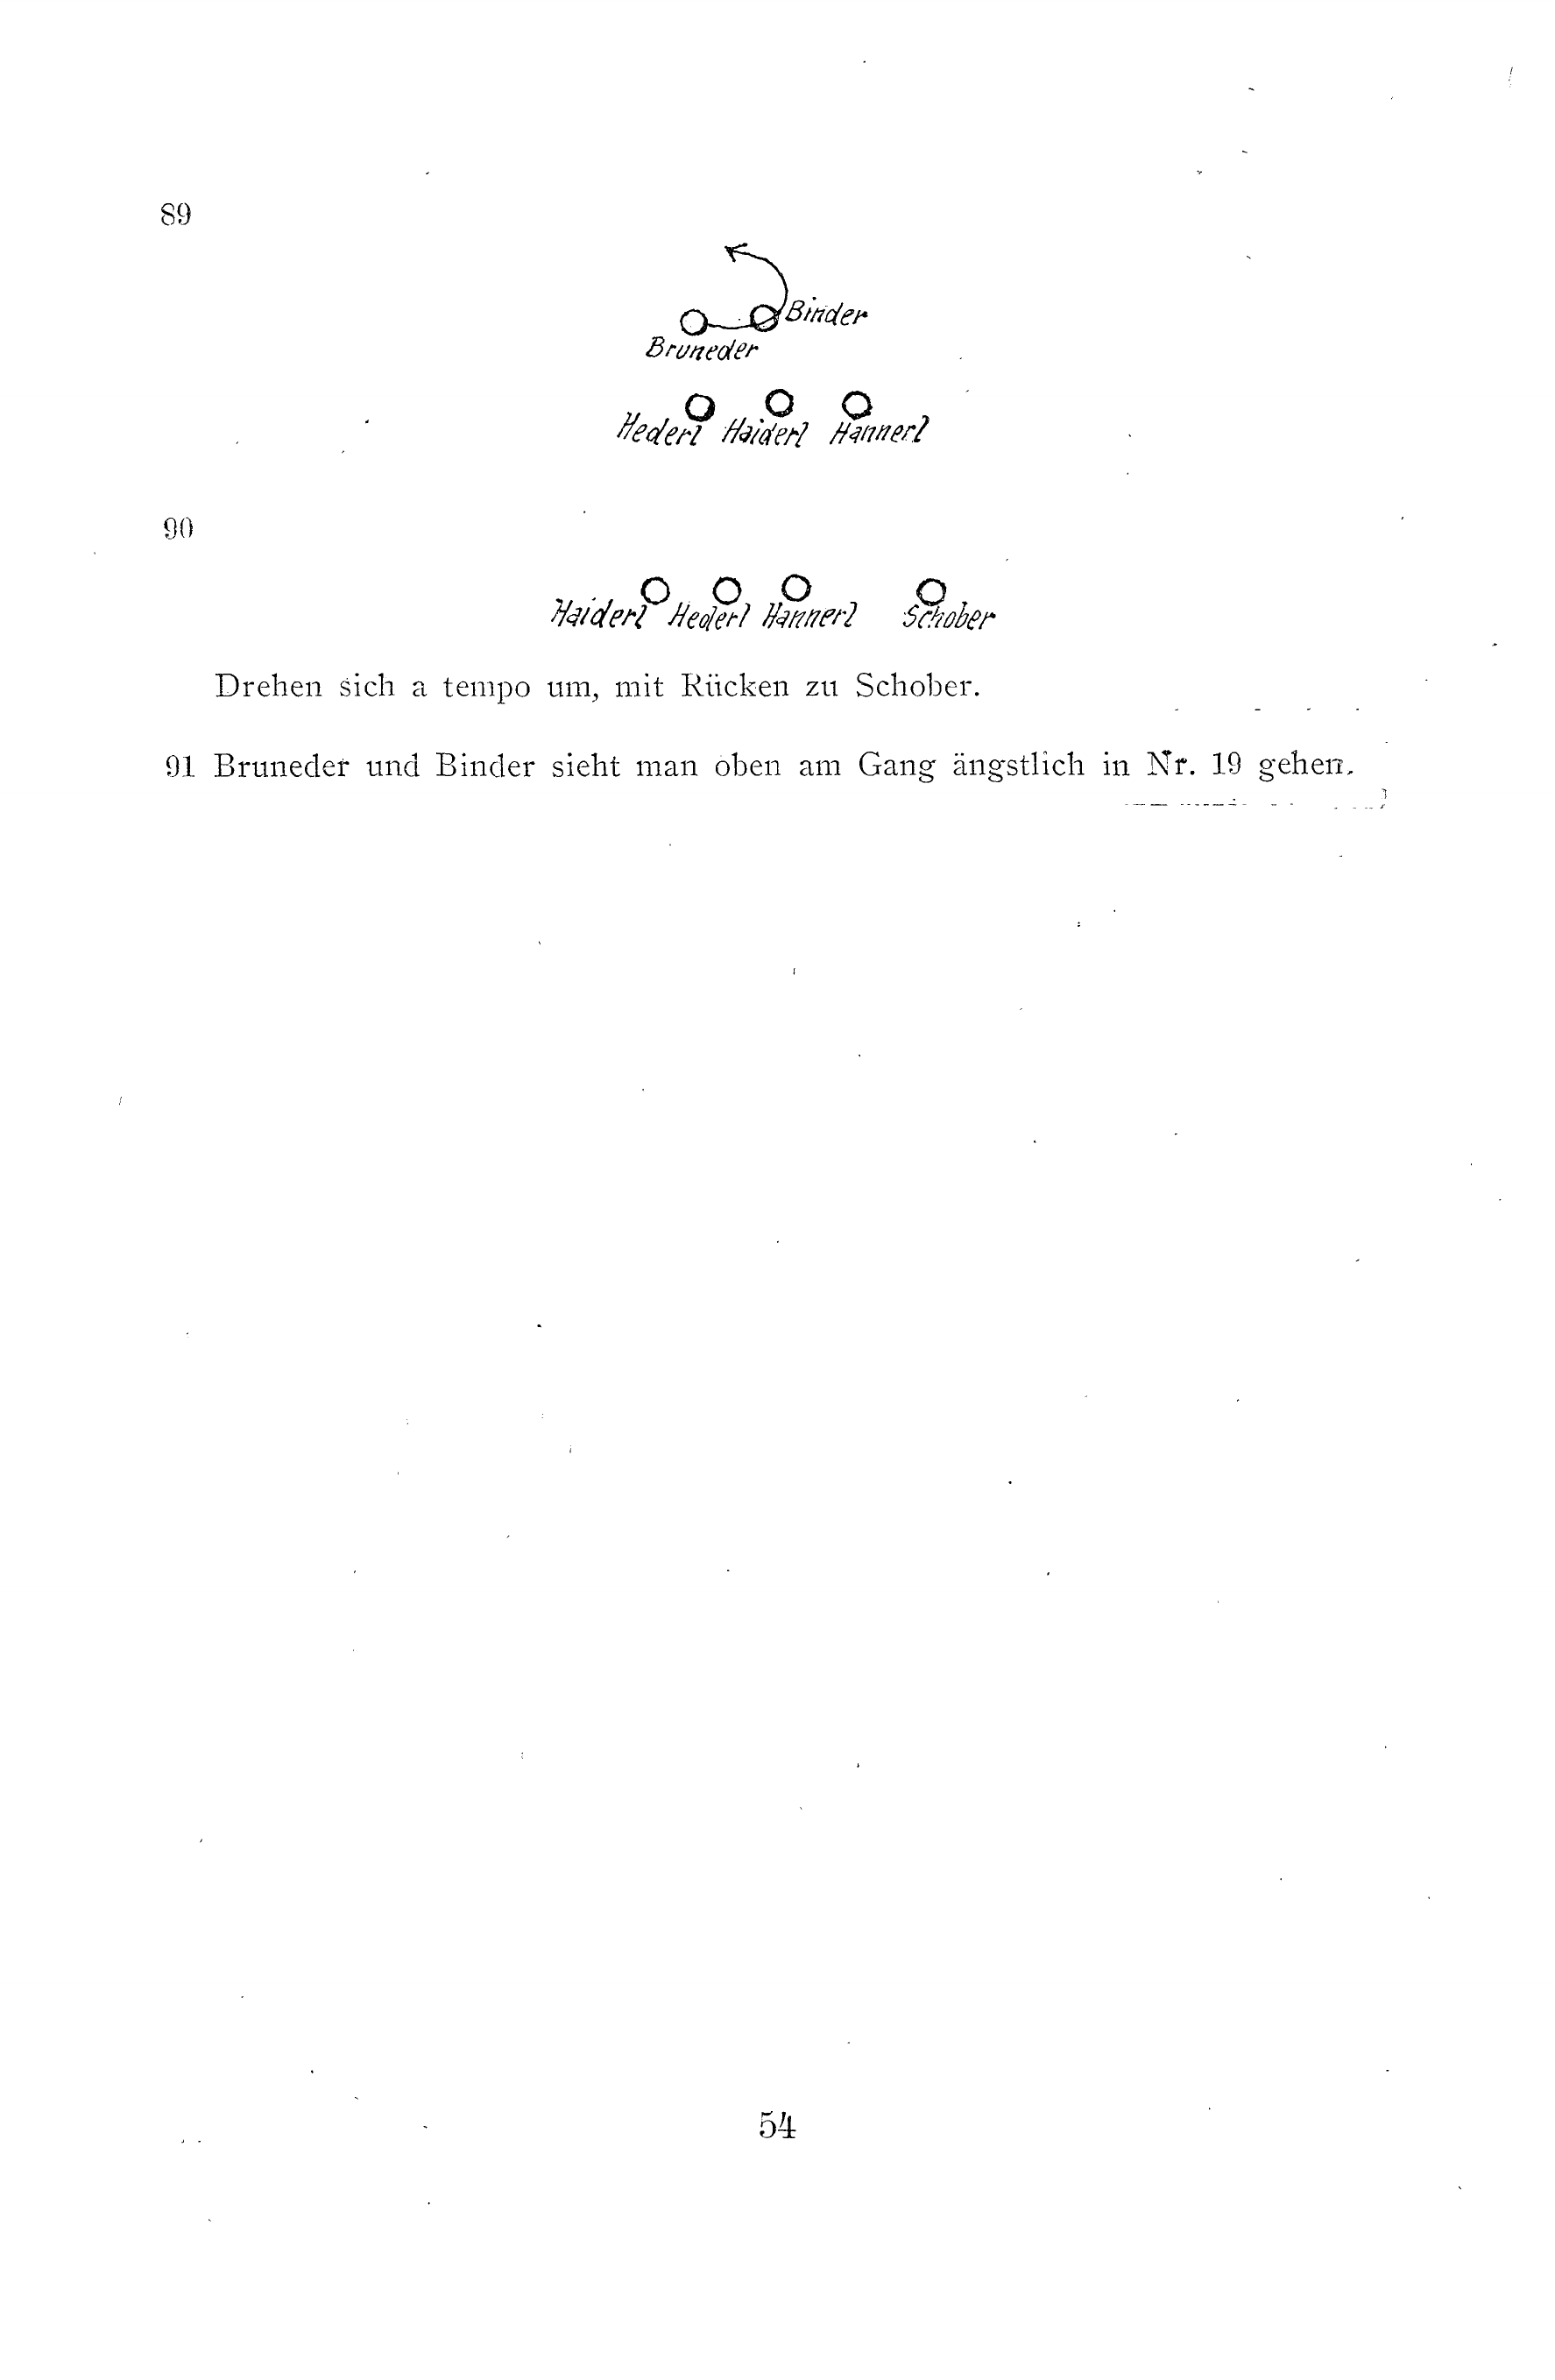 89
Binder
Bruneder
Hederl Haiderl Hannerl
90
Haiderl Hederl Hannerl Schober
Drehen sich a tempo um, mit Rücken zu Schober.
91 Bruneder und Binder sieht man oben am Gang ängstlich in Nr. 19 gehen.
54